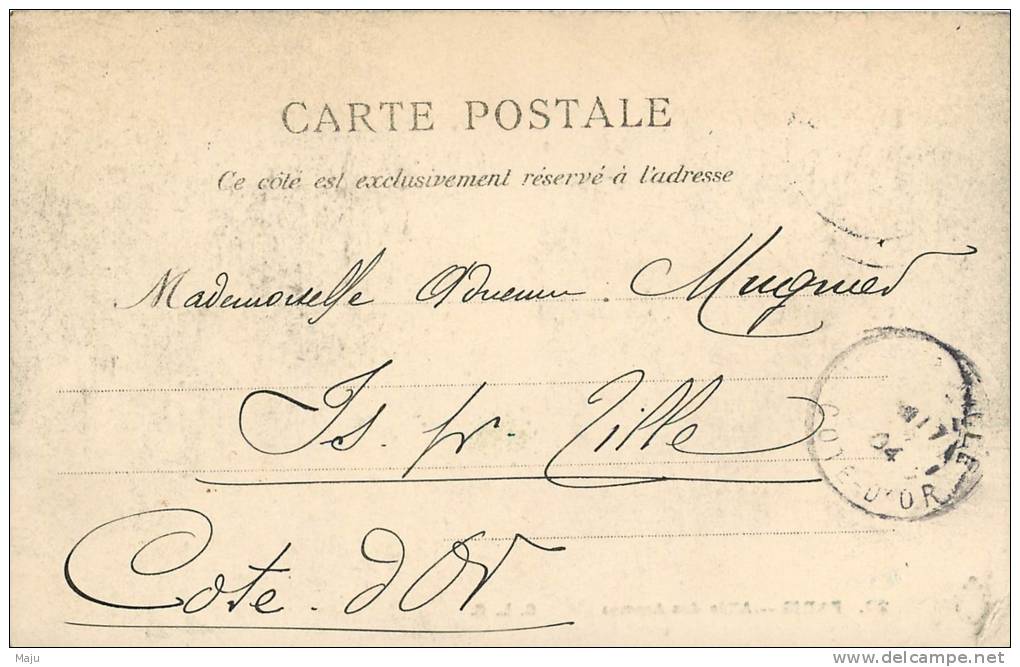 CARTE POSTALE
Ce côté est exclusivement réservé à l'adresse
Mademoiselle Mugnier
Is. sr. Tille
Cote. d'Or
COTE-D'OR
04
Maju
delcampe.net